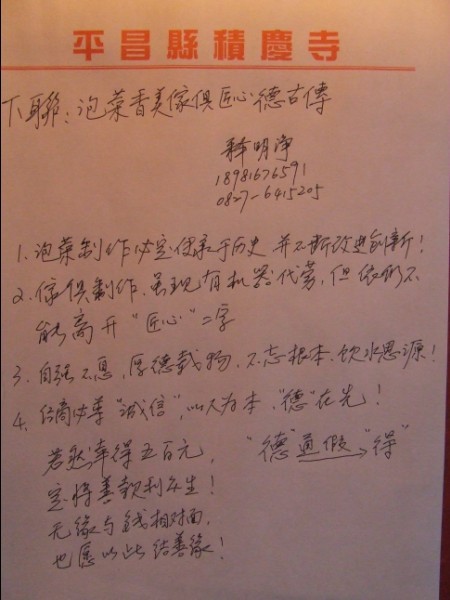 平昌縣積慶寺
下聯：泡菜香美傢俱匠心德古傳
释明净
18981676591
0827-6415205
1. 泡菜制作必定传承于历史 并不断改进创新！
2. 傢俱制作，虽现有机器代劳，但依仍不
能离开“匠心”二字
3. 自强不息，厚德载物，不忘根本，饮水思源！
4. 信商必尊“诚信”，以人为本，“德”在先！
若然幸得五百元，
定将善款利众生！
无缘与钱相对面，
也愿以此结善缘！
“德”通假“得”